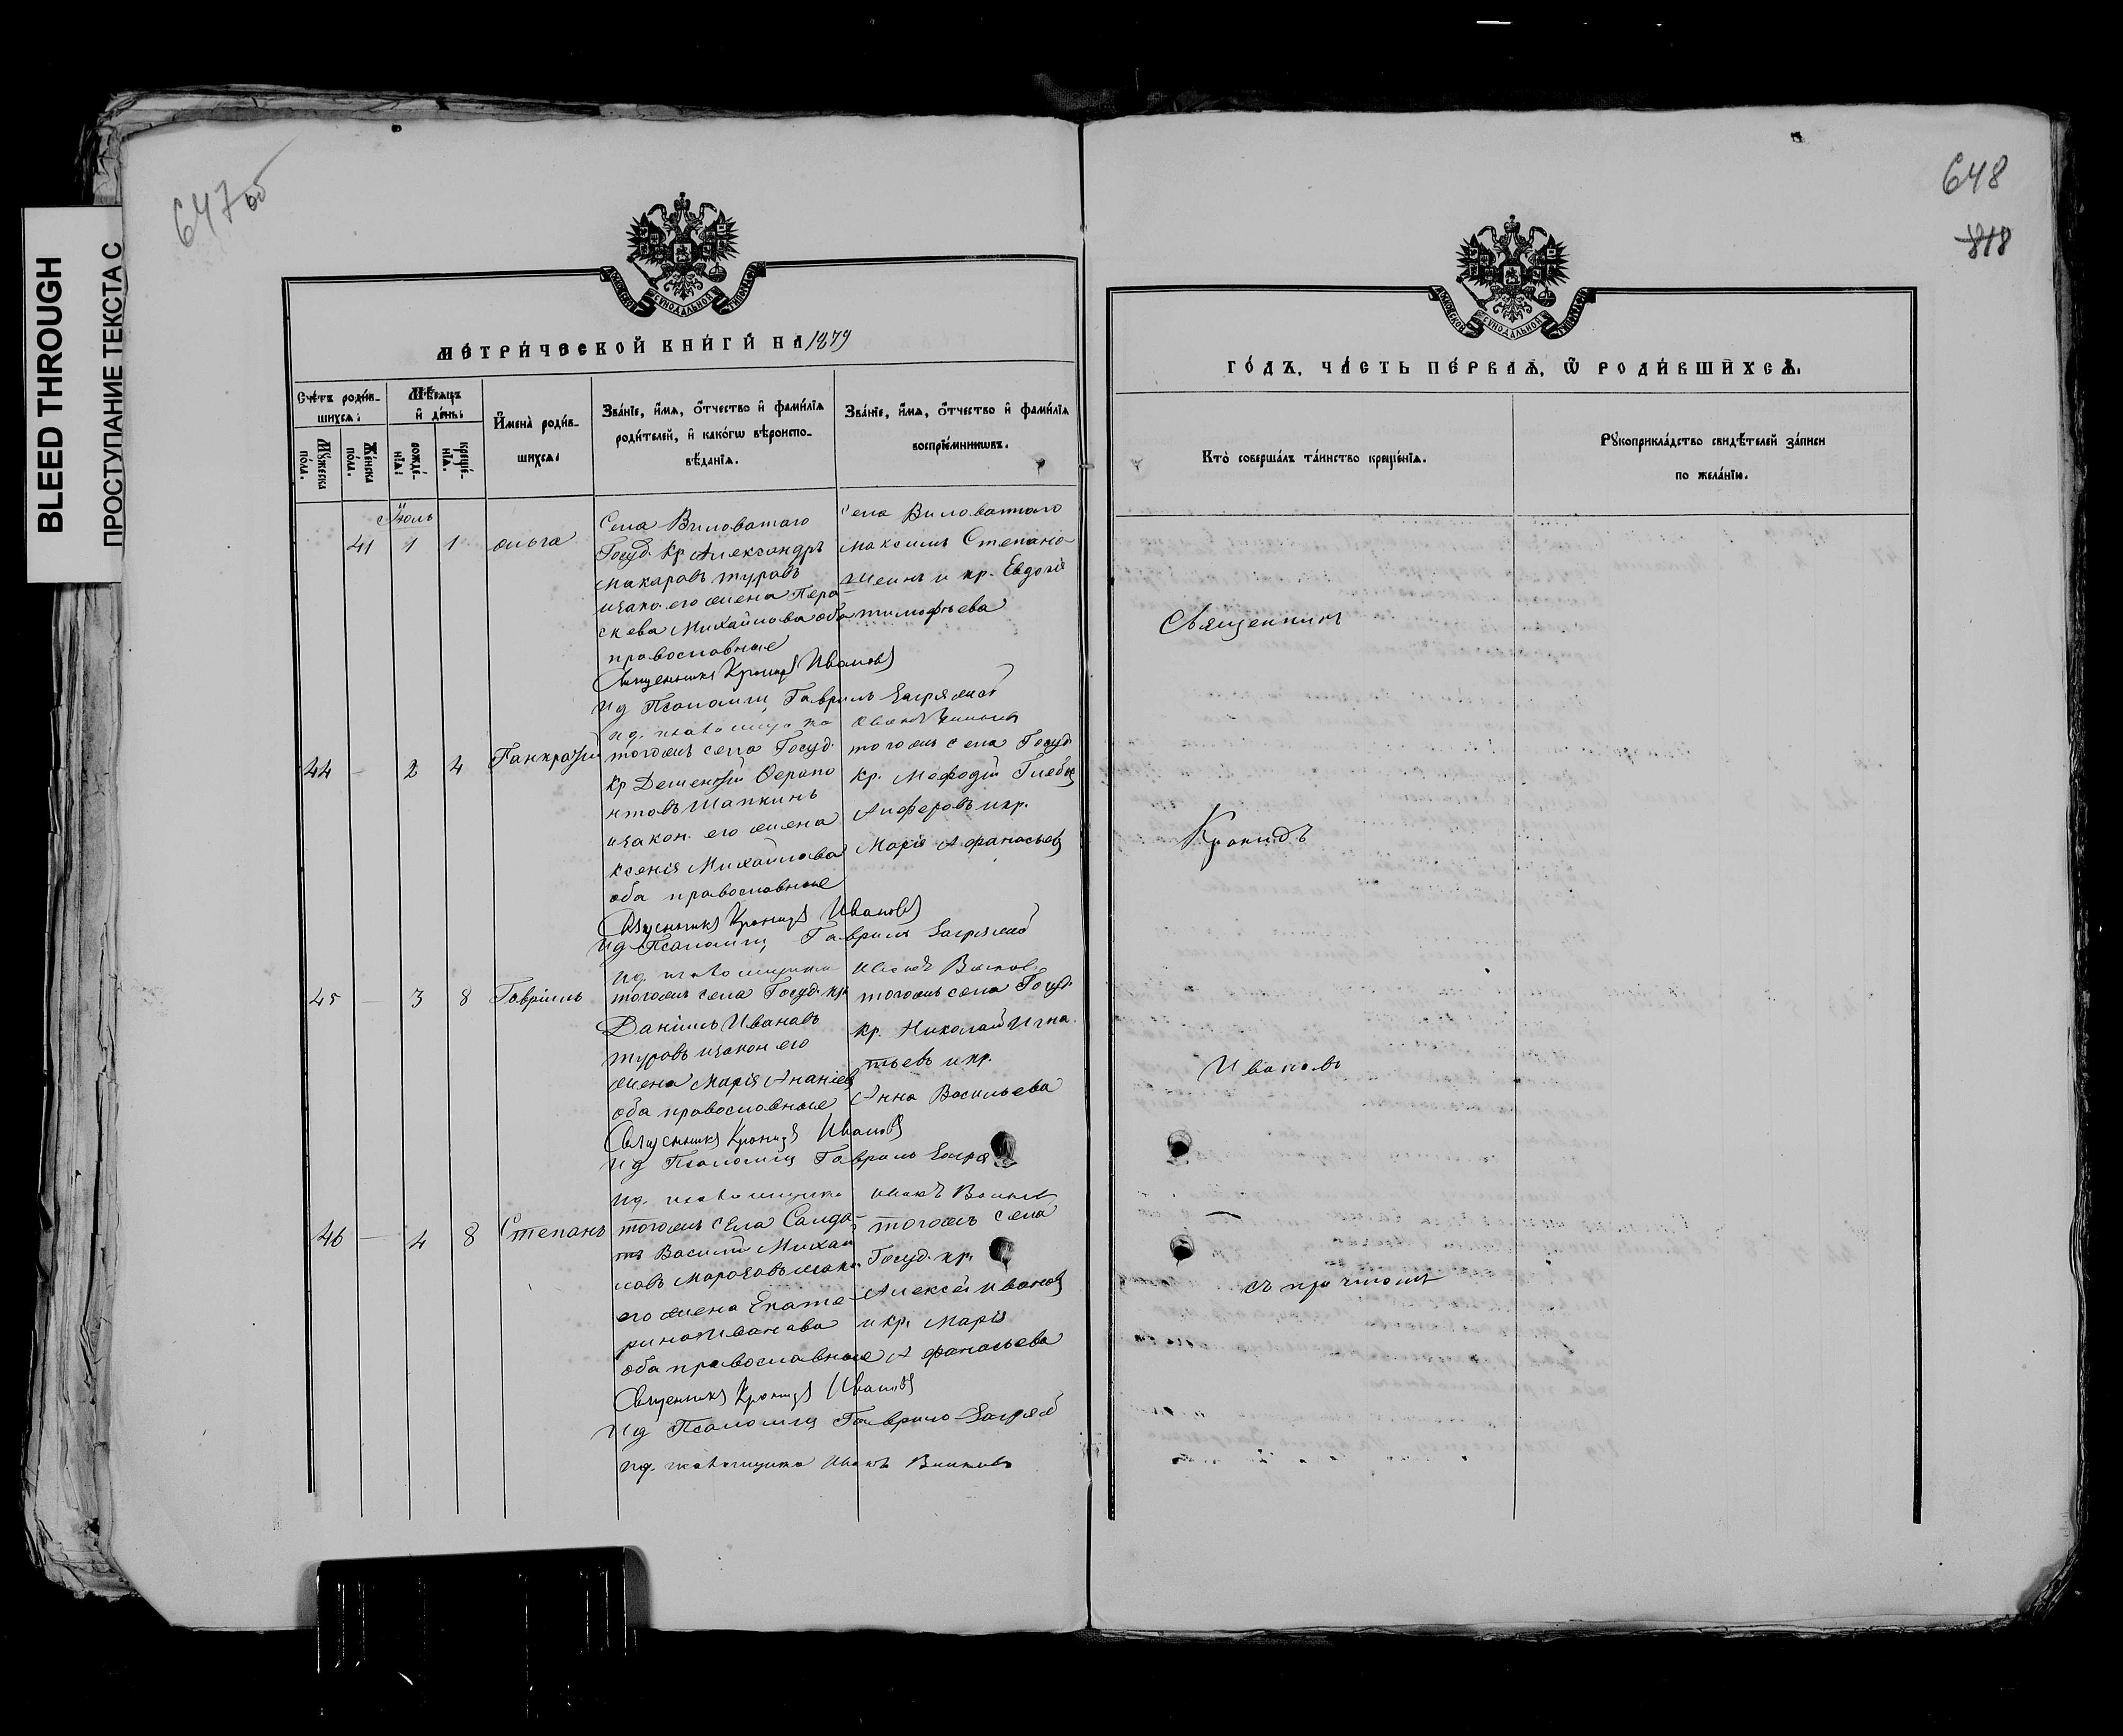 BLEED THROUGH
ПРОСТУПАНИЕ ТЕКСТА С
647 об
648
818
МЕТРИЧЕСКОЙ КНИГИ НА 1879
ГОДЪ, ЧАСТЬ ПЕРВАЯ, Ѿ РОДИВШИХСЯ.
Счетъ родив-
шихся:
Мужеска
пола.
Женска
пола.
Мѣсяцъ
и день:
рожде-
нія:
креще-
нія.
Имена родив-
шихся:
Званіе, имя, отчество и фамилія
родителей, и какогѡ вѣроиспо-
вѣданія.
Званіе, имя, отчество и фамилія
воспріемникѡвъ.
Кто совершалъ таинство крещенія.
Рукоприкладство свидѣтелей записи
по желанію.
Июль
41 1 1 Ольга
Села Виловатаго
Госуд. Кр Александръ
Макаровъ Туровъ
и зако. его жена Пера
скева Михайлова оба
православные
Села Виловатаго
Максимъ Степано
Шеинъ и кр. Евдокія
Тимофеева
Священникъ Кронидъ Ивановъ
ид Псаломщ Гавриилъ
44 - 2 4 Панкратій
тогожъ села Госуд.
Кр Дементій Ферапо
нтовъ Шапкинъ
и закон. его жена
Ксенія Михайлова
оба православные
тогожъ села Госуд
Кр. Мефодій Глебов
Алферовъ и кр.
Марія Афанасьев
Священникъ Кронидъ Ивановъ
ид Псаломщ Гавриилъ
45 - 3 8 Гавріилъ
тогожъ села Госуд. кр
Даніилъ Ивановъ
Туровъ и закон его
жена Марія Ананіев
оба православные
тогожъ села Госуд.
Кр. Николай Игна
тьевъ и кр.
Анна Васильева
Священникъ Кронидъ Ивановъ
ид Псаломщ Гавриилъ
46 - 4 8 Степанъ
тогожъ села Солда
тъ Василій Михай
ловъ Морозовъ и зако.
его жена Екате
рина Иванова
оба православные
тогожъ села
Госуд. кр.
Алексей Иванов
и кр. Марія
Афанасьева
Священникъ Кронидъ Ивановъ
ид Псаломщ Гавриилъ
Священникъ
Кронидъ
Ивановъ
съ причтомъ